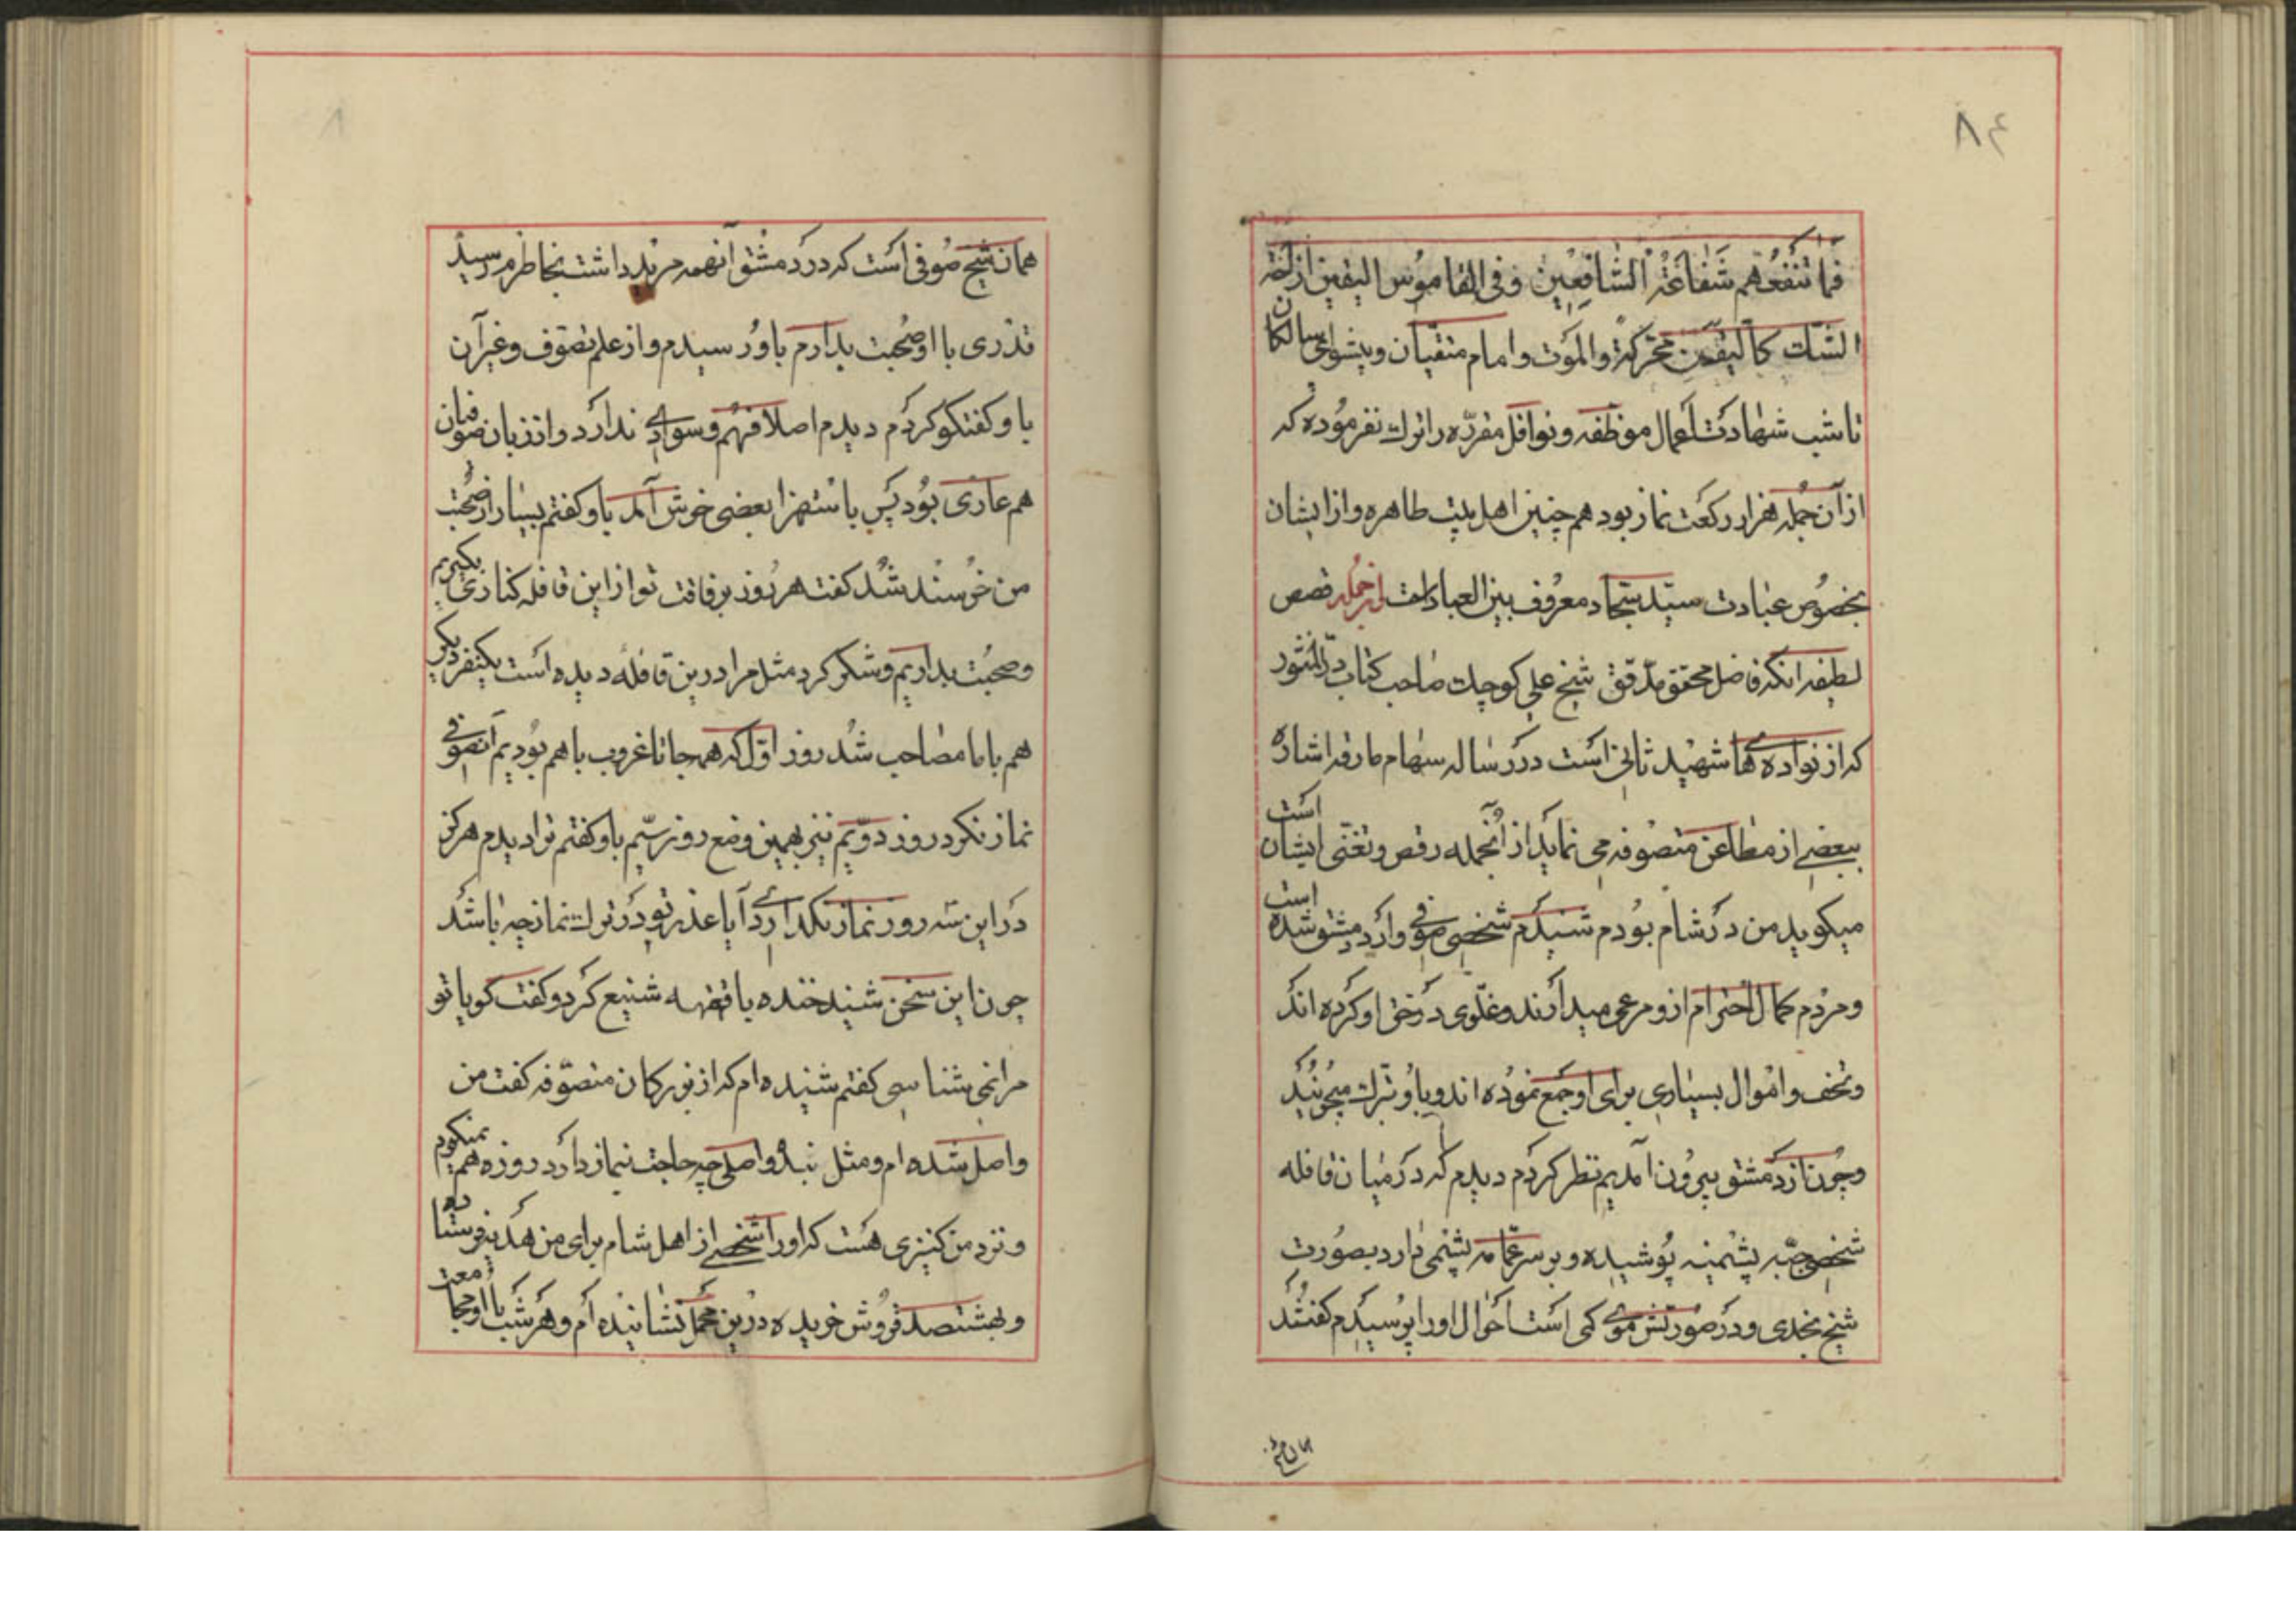 ۸۴
فما تنفعهم شفاعة الشافعین و فی القاموس الیقین ازاحة
الشک کالیقن محرکة والموت و امام متقیان و پیشوای سالکان
تا شب شهادت اعمال موظفه و نوافل مقرّره را ترک نفرموده که
از آن جمله هزار رکعت نماز بود هم چنین اهل بیت طاهره و از ایشان
بخصوص عبادت سیّد سجّاد معروف بین العباد است از جمله قصص
لطیفه آنکه فاضل محقق مدقّق شیخ علی کوچک صاحب کتاب درّ المنثور
که از نواده های شهید ثانی است در رساله سهام مارقه اشاره
ببعضی از مطاعن متصوفه می نماید از آنجمله رقص و تغنّی ایشان است
میکوید من در شام بودم شنیدم شخصی صوفی وارد دمشق شده است
و مردم کمال احترام از و مرعی میدارند و غلّوی در حق او کرده اند
و تحف و اموال بسیاری برای او جمع نموده اند و باو تبرک میجویند
و چون از دمشق بیرون آمدیم نظر کردم دیدم که در میان قافله
شخصی جبّه پشمینه پوشیده و بر سر عمّامه پشمی دارد بصورت
شیخ نجدی و در صورتش موی کمی است احوال او را پرسیدم گفتند
همان شیخ
همان شیخ صوفی است که در دمشق آنهمه مرید داشت بخاطرم رسید
قدری با او صحبت بدارم باو رسیدم و از علم تصوف و غیر آن
با و کفتکو کردم دیدم اصلا فهم و سوادی ندارد و از زبان صوفیان
هم عاری بود پس باستهزا بعضی خوش آمد باو کفتم بسیار از صحبت
من خرسند شد کفت هر روز برفاقت تو از این قافله کناری بکیریم
و صحبت بداریم و شکر کرد مثل مرا درین قافله دیده است یکنفر دیکر
هم با ما مصاحب شد روز اوّل که همه جا تا غروب با هم بودیم آنصوفی
نماز نکرد روز دوّیم نیز بهمین وضع روز سیّم باو کفتم ترا دیدم هرکز
در این سه روز نماز نکذاردی آیا عذر تو در ترک نماز چه باشد
چون این سخن شنید خنده با قهقهه شنیع کرد و کفت کویا تو
مرا نمی شناسی کفتم شنیده ام که از بزرکان متصوّفه کفت من
واصل شده ام و مثل بندۀ واصلی چه حاجت بنماز دارد روزه هم نمیکیرم
و نزد من کنیزی هست که او را شخصی از اهل شام برای من هدیه فرستاده
و بهشتصد قروش خریده درین محمل نشانیده ام و هر شب با او مجامعت